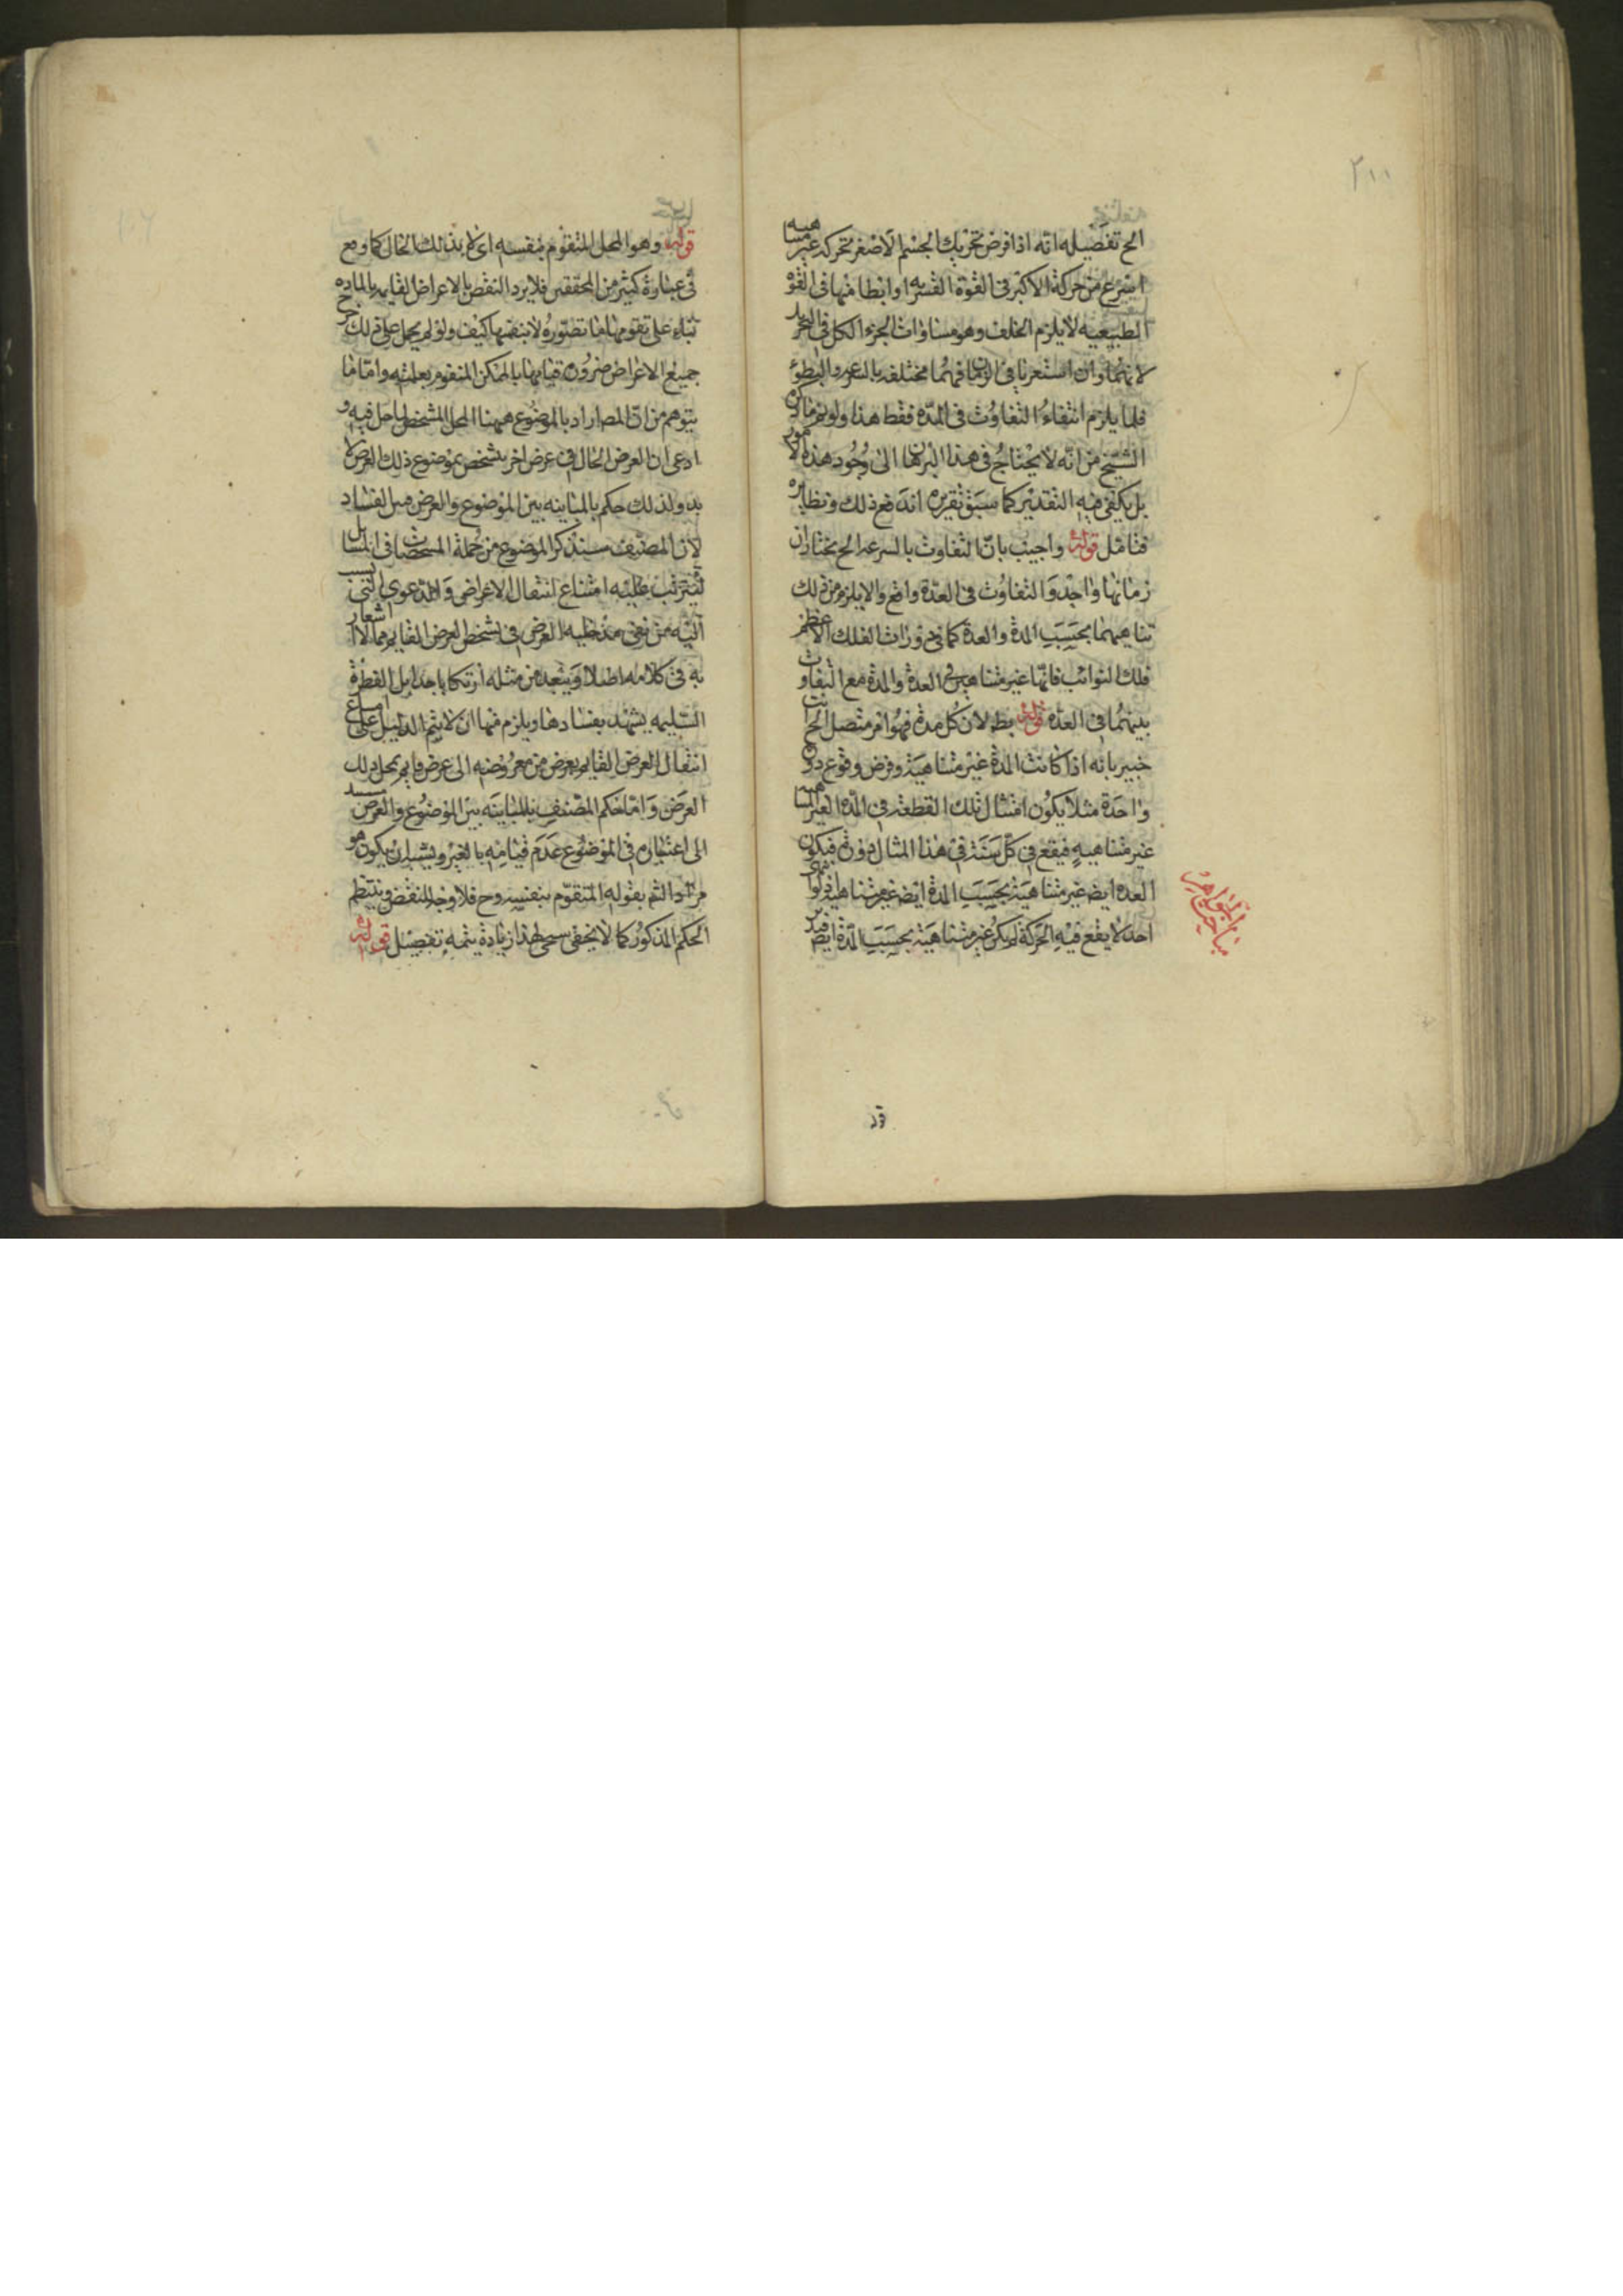 ٢١١
الح تفصيله انه اذا فرض تحريك الجسم الاصغر تحركه غير متناهيه
اسرع من حركة الاكبر في القوة القسريه او ابطا منها في القوة
الطبيعيه لا يلزم الخلف وهو مساوات الجزء الكل في
لانهما وان استغرقا في الزمان فهما مختلفه بالسرعه والبطوء
فلما يلزم انتفاء التفاوت في المدّة فقط هذا ولو لزم ما ذكره
الشيخ من انّه لا يحتاج في هذا البرهان الى وجود هذه الامور
بل يكفي فيه التقدير كما سبق تقريره اندفع ذلك ونظايره
فتامل قوله واجيب بانّ التفاوت بالسرعه الح يختار ان
زمانها واحد والتفاوت في العدّة واقع والا يلزم من ذلك
تناهيهما بحسب المدة والعدة كما في دورات الفلك الاعظم
فلك الثوابت فانّها غير متناهي العدة والمدة مع التفاوت
بينهما في العدّة قوله بط لان كل مدة فهو امر متصل الح انت
خبير بانه اذا كانت المدة غير متناهية وفرض وقوع دورة
واحدة مثلا يكون امثال تلك القطعة في المدّه الغير المتناهيه
غير متناهيه فيقع في كل سنة في هذا المثال دورة فيكون
العدة ايض غير متناهية بحسب المدة ايض غير متناهية
احد لا يقع فيه الحركة لم يكن غير متناهية بحسب المدّة ايض
مباحث الجواهر
قد
قوله وهو المحل المتقوم بنفسه اى لا بذلك الحال كما وقع
في عبارة كثير من المحققين فلا يرد النقض بالاعراض القايمه بالماده
بناء على تقومها بما تصوره لا بنفسها كيف ولو لم يحمل على ذلك خرج
جميع الاعراض ضرورة قيامها بالممكن المتقوم بعلته وامّا ما
يتوهم من انّ المص اراد بالموضوع ههنا المحل المشخص لما حل فيه و
ادعى ان العرض الحال في عرض اخر يشخص بموضوع ذلك العرض لا
به ولذلك حكم بالمباينه بين الموضوع والعرض فبين الفساد
لان المصنف سيذكر الموضوع من جملة المشخصات في المسائل
ليترتب عليه امتناع انتقال الاعراض والدعوى التي نسب
اليه من نفى مدخليه العرض في تشخص العرض القايم مما لا اشعار
به في كلامه اصلا ويبعد من مثله ارتكابها بل الفطرة
السليمه يشهد بفسادها ويلزم منها ان لا يتم الدليل على امتناع
انتقال العرض القايم بعرض من معروضه الى عرض قايم بمحل ذلك
العرض وامّا حكم المصنف بالمباينه بين الموضوع والعرض
الى اعتباره في الموضوع عدم قيامه بالغير ويشبه ان يكون هو
مراد القم بقوله المتقوّم بنفسه وح فلا وجه للنقض وينتظم
الحكم المذكور كما لا يخفى سيجئ لهذا زيادة تتمه تفصيل قوله